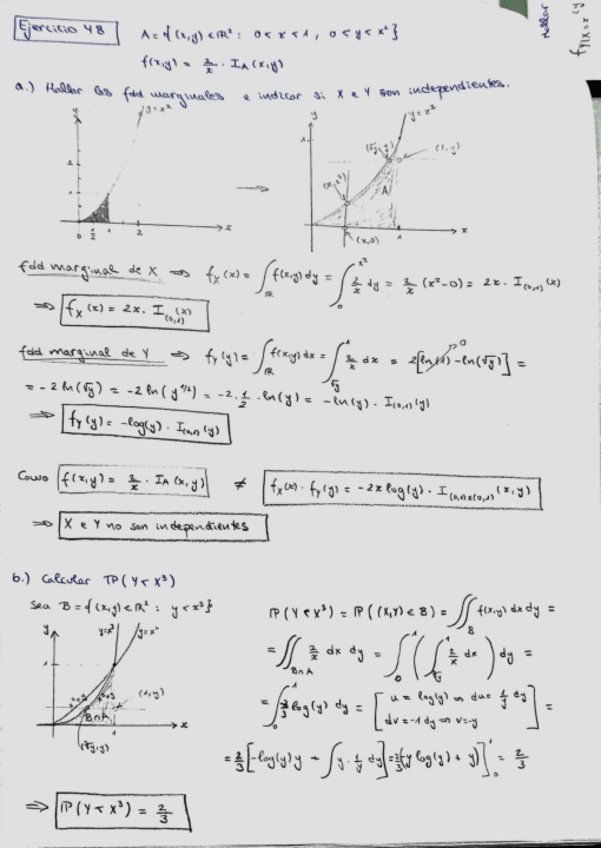 Ejercicio 48
A = {(x,y) ∈ ℝ² : 0 < x < 1, 0 < y < x²}
f(x,y) = 2/x · I_A(x,y)
a.) Hallar las fdd marginales e indicar si X e Y son independientes.
y = x²
y = x²
(√y, y)
(1, y)
(x, x²)
A
(x, 0)
fdd marginal de X ⇒ f_X(x) = ∫_ℝ f(x,y) dy = ∫_0^{x²} 2/x dy = 2/x (x² - 0) = 2x · I_(0,1)(x)
⇒ f_X(x) = 2x · I_(0,1)(x)
fdd marginal de Y ⇒ f_Y(y) = ∫_ℝ f(x,y) dx = ∫_{√y}^1 2/x dx = 2[ln(1) - ln(√y)] =
= -2 ln(√y) = -2 ln(y^{1/2}) = -2 · 1/2 · ln(y) = -ln(y) · I_(0,1)(y)
⇒ f_Y(y) = -log(y) · I_(0,1)(y)
Como f(x,y) = 2/x · I_A(x,y) ≠ f_X(x) · f_Y(y) = -2x log(y) · I_(0,1)x(0,1)(x,y)
⇒ X e Y no son independientes
b.) Calcular ℙ(Y < X³)
Sea B = {(x,y) ∈ ℝ² : y < x³}
y = x³
y = x²
(1, y)
B∩A
(∛y, y)
ℙ(Y < X³) = ℙ((X,Y) ∈ B) = ∫∫_B f(x,y) dx dy =
= ∫∫_{B∩A} 2/x dx dy = ∫_0^1 (∫_{∛y}^1 2/x dx) dy =
= ∫_0^1 -2/3 log(y) dy = [u = log(y) ⇒ du = 1/y dy
dv = -1 dy ⇒ v = -y] =
= 2/3 [-log(y) y + ∫ y · 1/y dy] = 2/3 (-y log(y) + y)]_0^1 = 2/3
⇒ ℙ(Y < X³) = 2/3
Hallar
f_Y|X=x (y